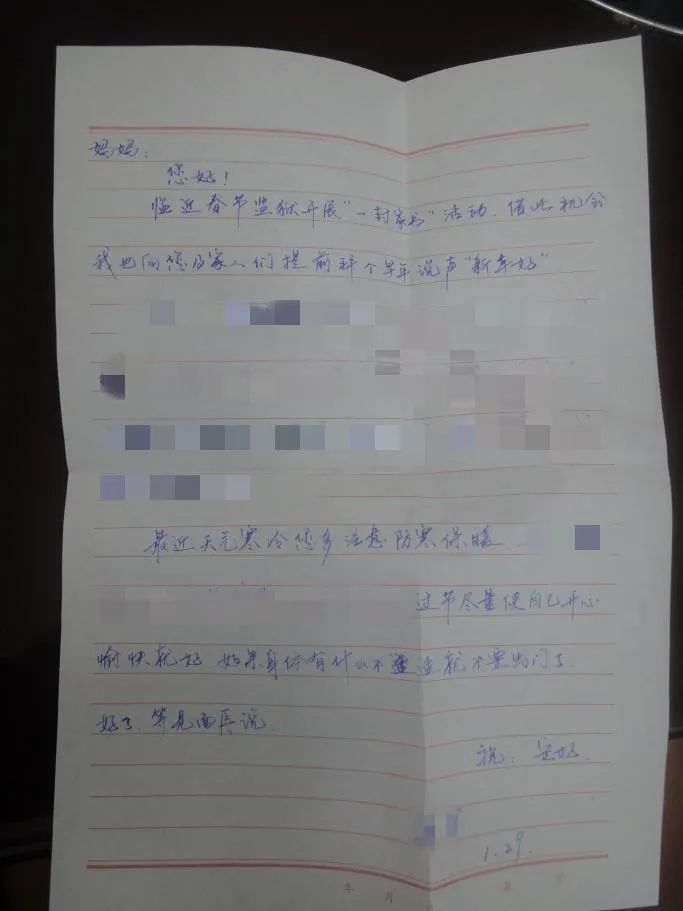 妈妈：
您好！
临近春节监狱开展“一封家书”活动，借此机会
我也向您及家人们提前拜个早年说声“新年好”
最近天气寒冷您多注意防寒保暖
过节尽量使自己开心
愉快就好 如果身体有什么不适就不要出门了，
好了，等见面再说，
祝：安好，
1.29.
年 月